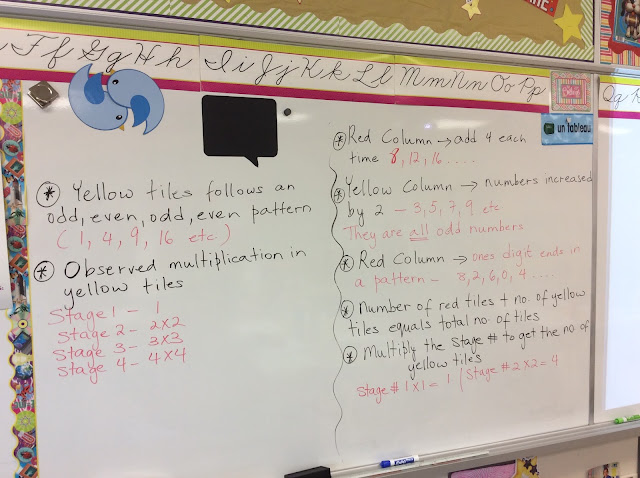 Ff Gg Hh Ii Jj Kk Ll Mm Nn Oo Pp
Qq
un tableau
* Yellow tiles follows an
odd, even, odd, even pattern
(1, 4, 9, 16 etc.)
* Observed multiplication in
yellow tiles
Stage 1 - 1
Stage 2 - 2x2
Stage 3 - 3x3
Stage 4 - 4x4
* Red Column → add 4 each
time 8, 12, 16 ....
* Yellow Column → numbers increased
by 2 - 3, 5, 7, 9 etc
They are all odd numbers
* Red Column → ones digit ends in
a pattern - 8, 2, 6, 0, 4 ....
* Number of red tiles + no. of yellow
tiles equals total no. of tiles
* Multiply the Stage # to get the no of
yellow tiles
Stage # 1x1 = 1 | Stage # 2x2 = 4